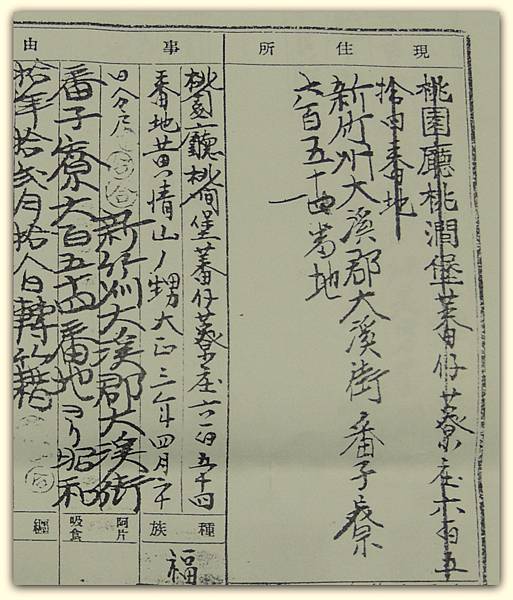 現住所
桃園廳桃澗堡蕃仔藔庄六百五
拾四番地
新竹州大溪郡大溪街番子藔
六百五十四番地
事由
桃園廳桃澗堡蕃仔藔庄六百五十四
番地黃情山ノ甥大正三年四月二十
新竹州大溪郡大溪街
番子寮六百五十四番地ヨリ昭和
拾年拾弍月拾八日轉籍
種族
福
阿片
吸食
纏